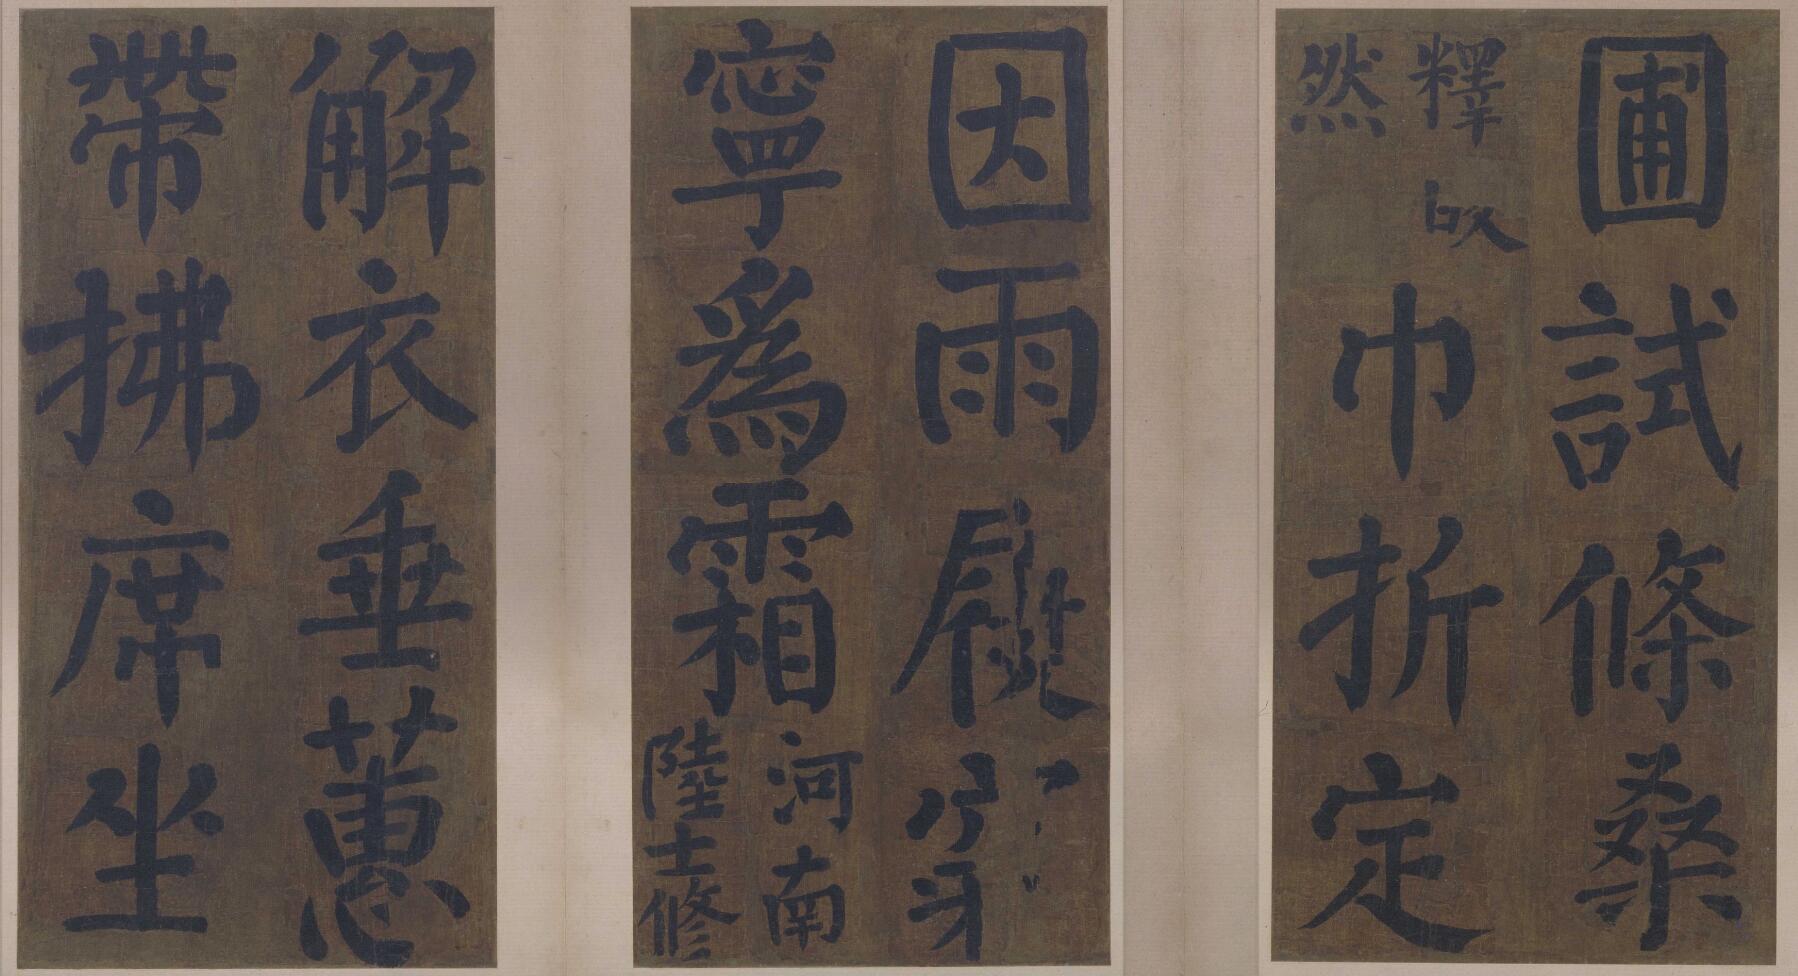 圃試條桑
釋皎
然
巾折定
因雨履穿
寧爲霜
河南
陸士修
解衣垂蕙
帶拂席坐